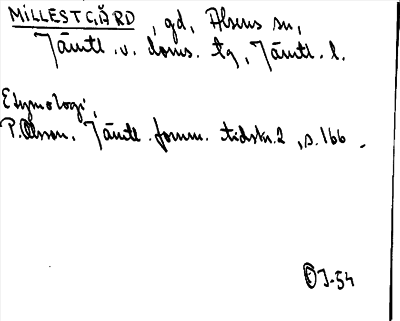 MILLESTGÅRD, gd, Alsens sn,
Jämtl. v. doms. tg, Jämtl. l.
Etymologi,
P. Olsson, Jämtl. fornm. tidskr. 2, s. 166.
ÖJ-54